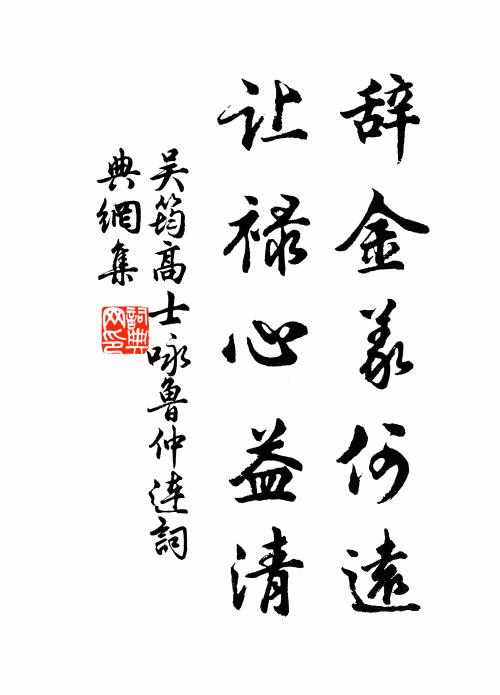 辞金义何远
让禄心益清
吴筠高士咏鲁仲连詞
典網集
詞典
网印